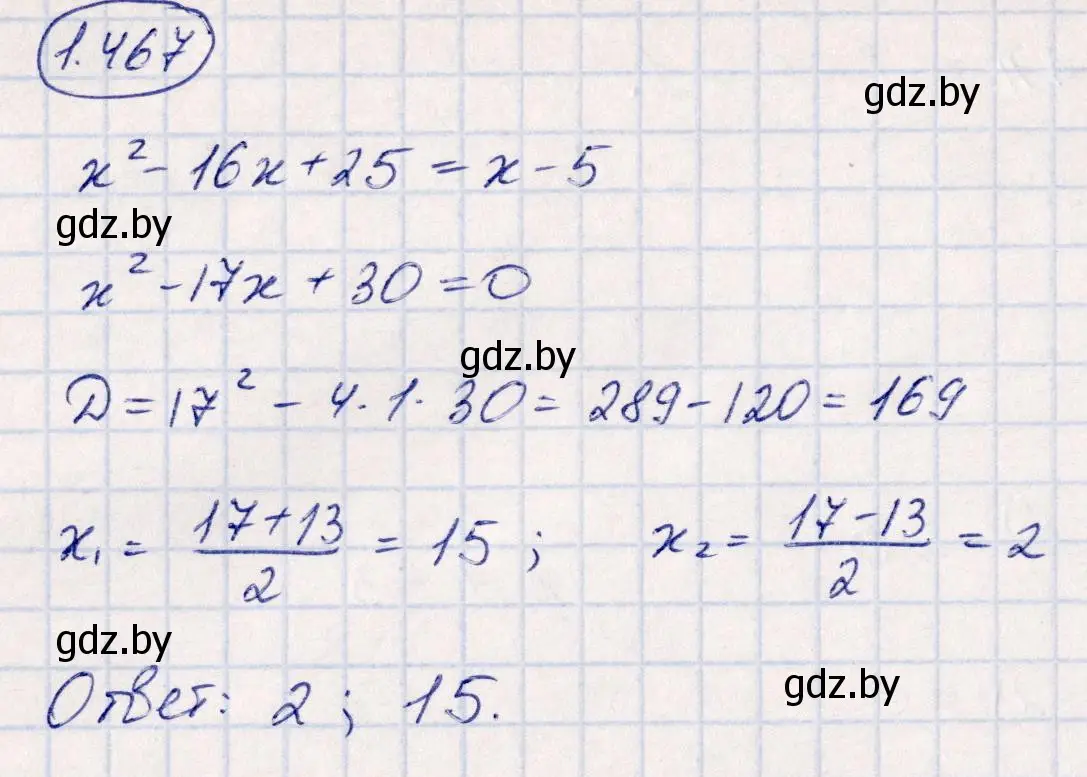 1.467
gdz.by
x² - 16x + 25 = x - 5
gdz.by
x² - 17x + 30 = 0
gdz.by
D = 17² - 4 · 1 · 30 = 289 - 120 = 169
x₁ = (17 + 13)/2 = 15 ; x₂ = (17 - 13)/2 = 2
gdz.by
gdz.by
Ответ: 2 ; 15.